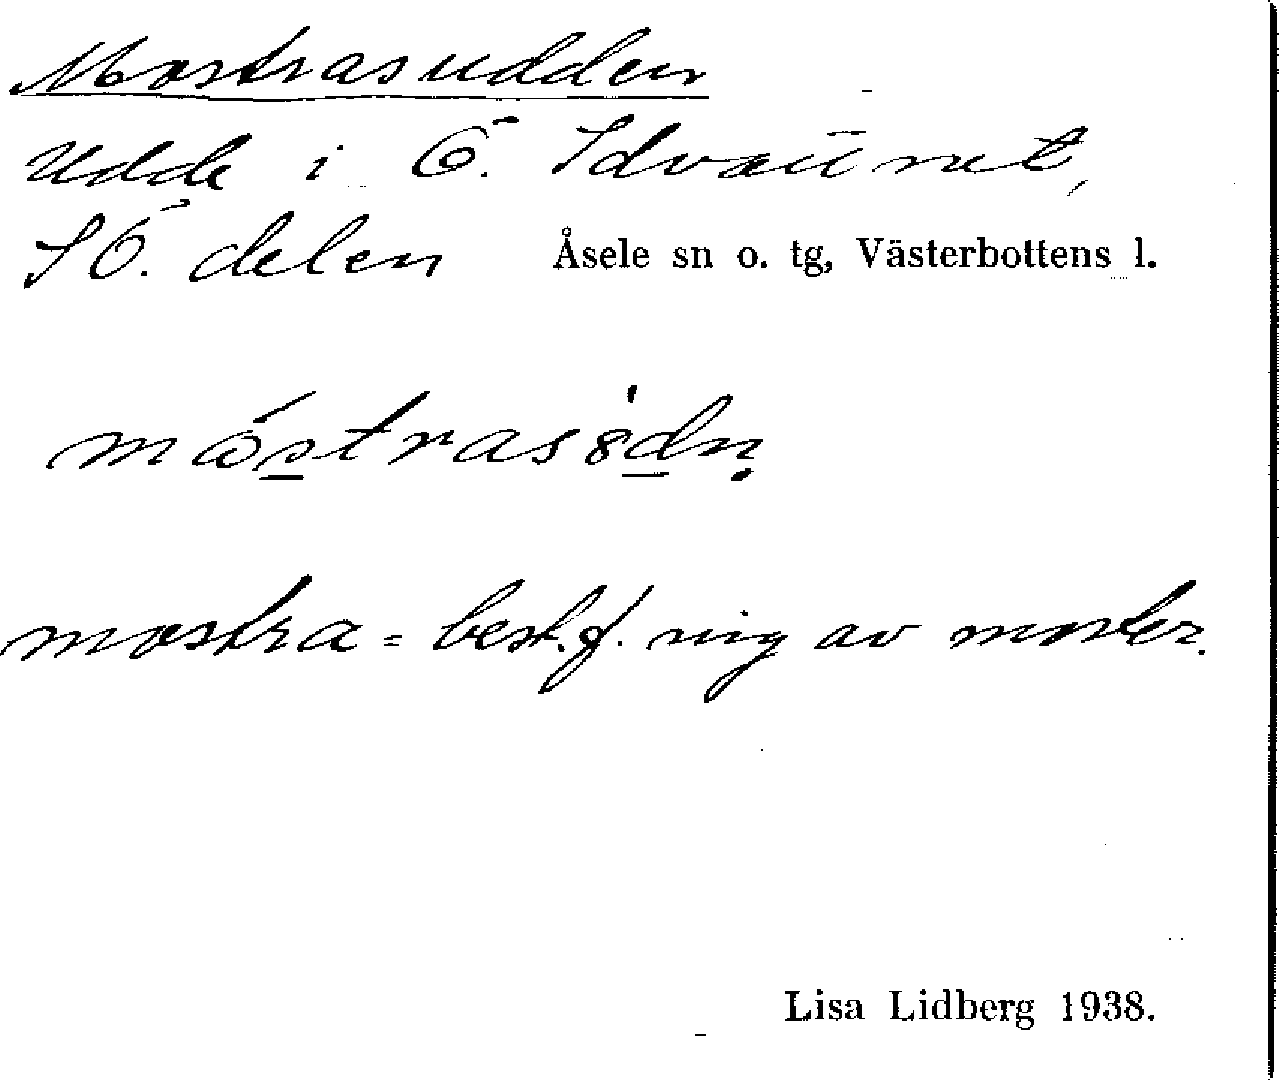 Mostrasudden
Udde i Ö. Idvattnet,
SÖ. delen Åsele sn o. tg, Västerbottens l.
móstrasȣdn̥
mostra = best. f. sing av moster.
Lisa Lidberg 1938.